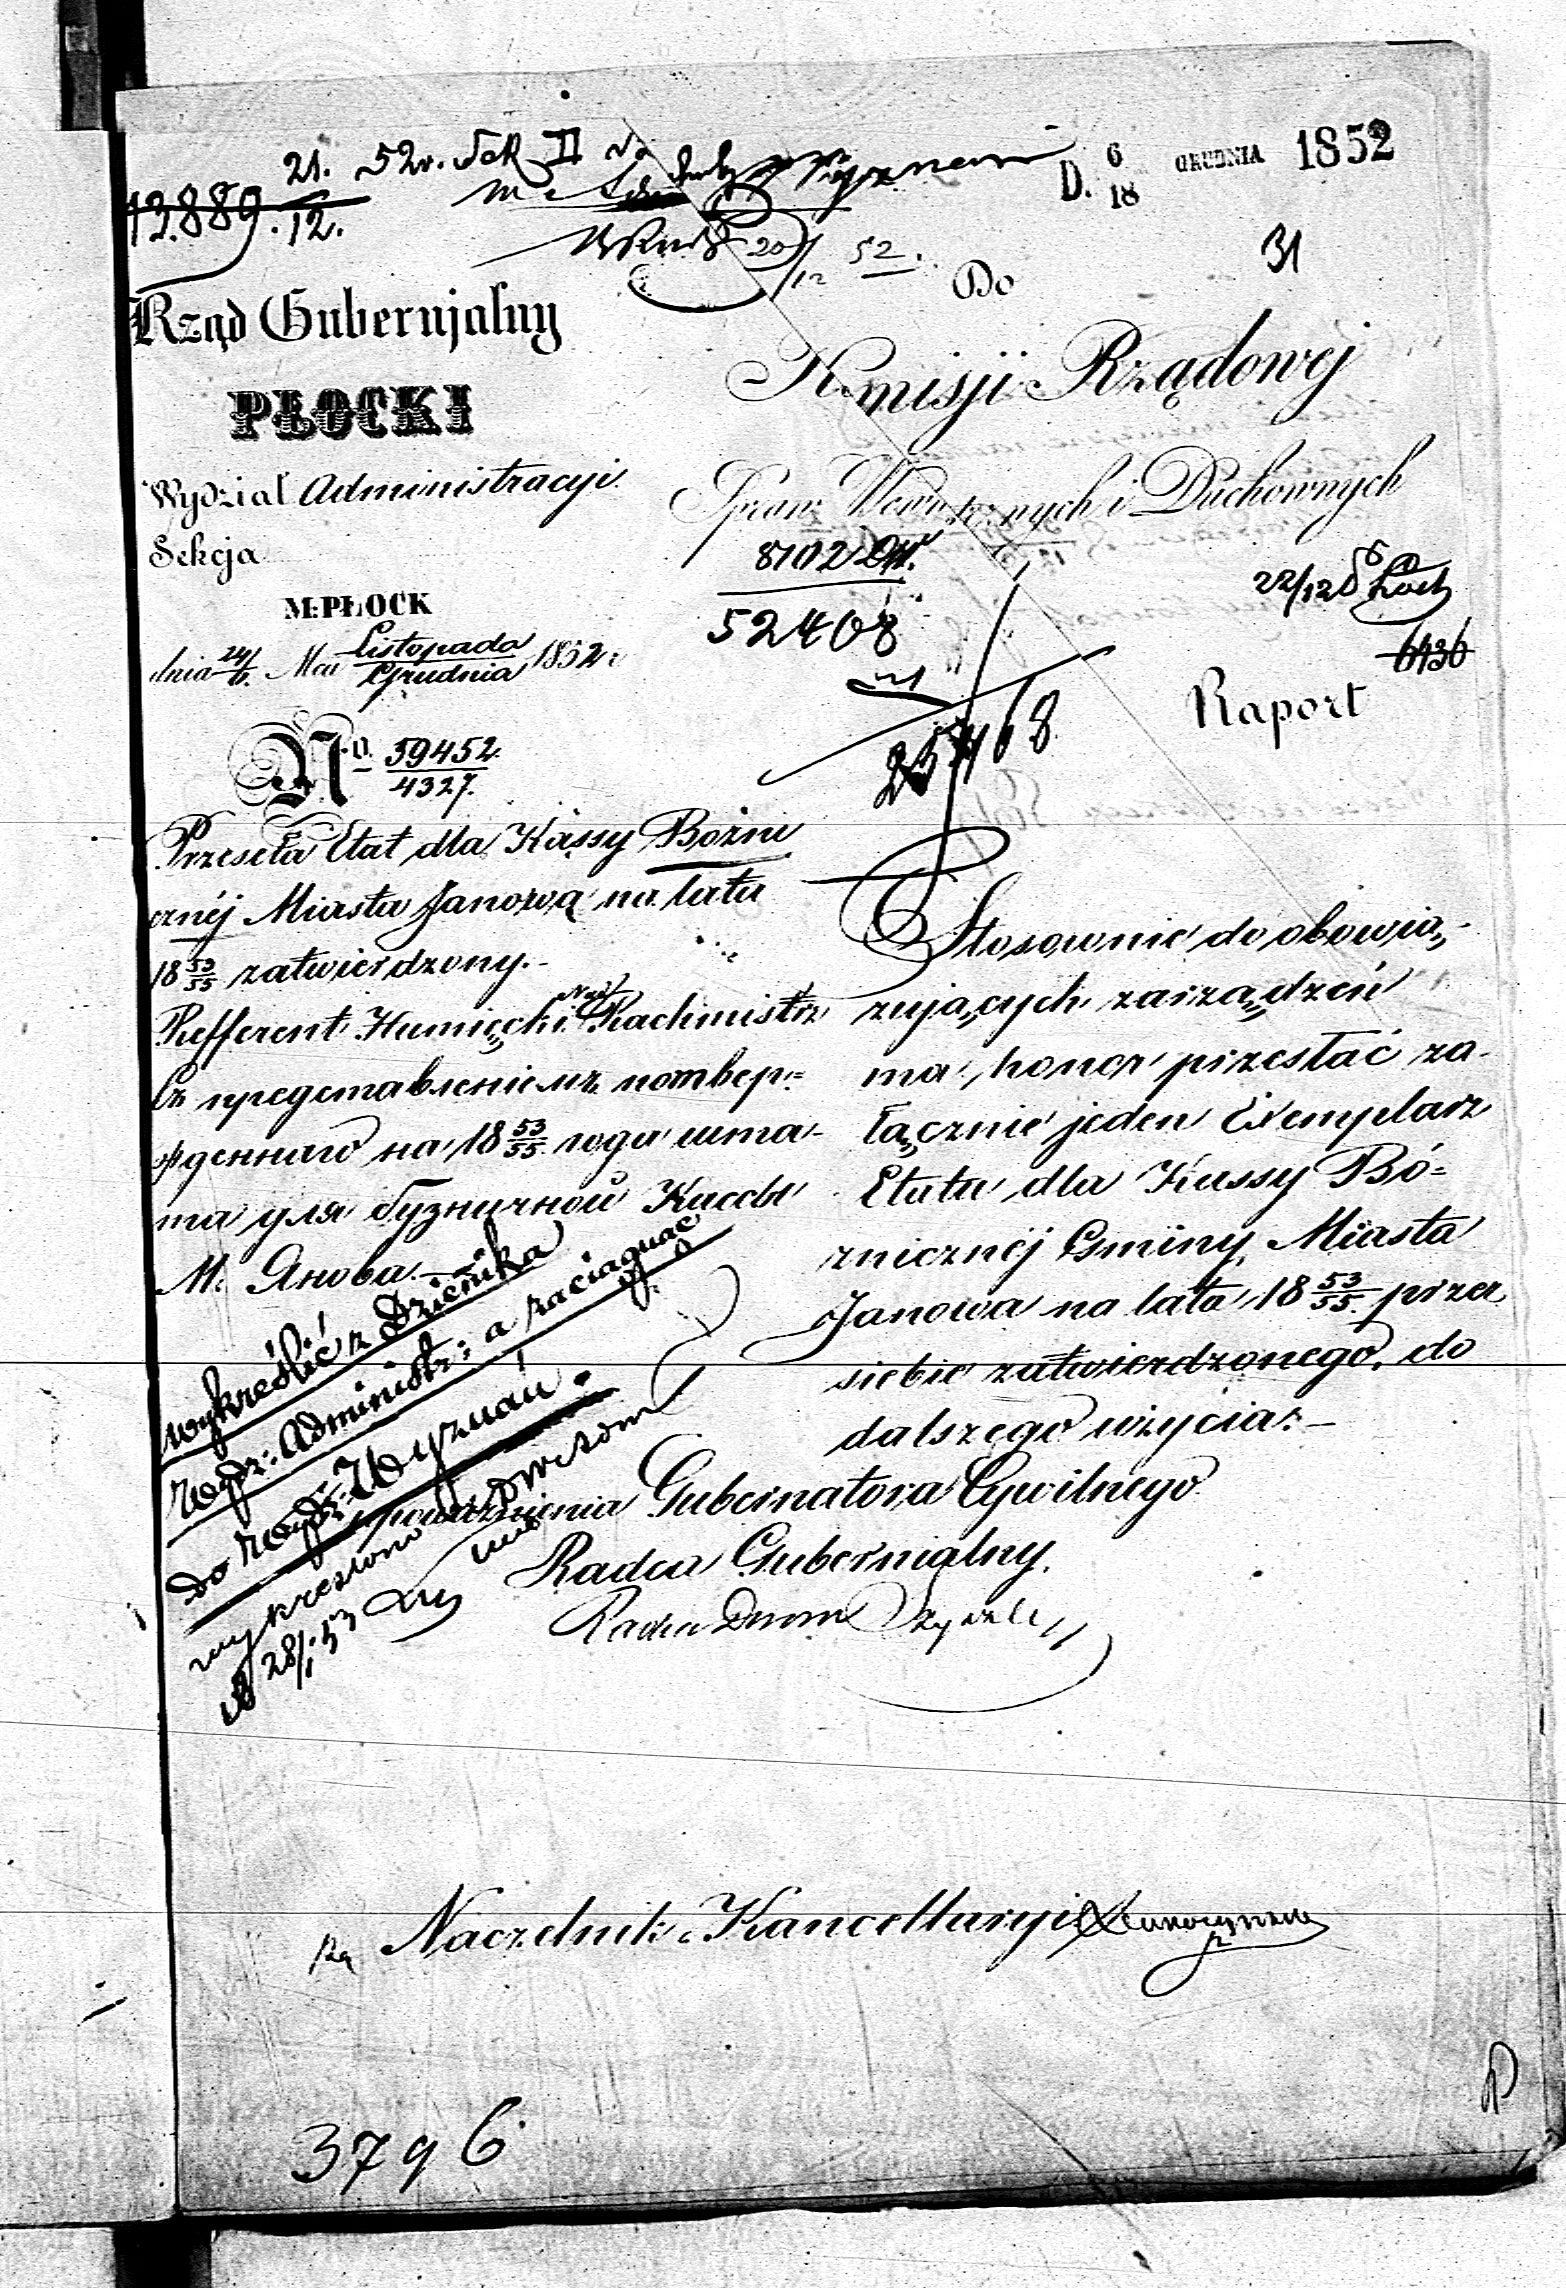 21. 52r. Sek II
13.889. 12.
20/12 52.
D. 6/18 GRUDNIA 1852
31
Rząd Gubernjalny
PŁOCKI
Wydział Administracyi
Sekcja
M: PŁOCK
dnia 24/6 Mca Listopada/Grudnia 1852 r
No 59452/4327.
Przeseła Etat dla Kassy Bożni
cznéj Miasta Janowa na lata
18 53/55 zatwierdzony.-
Refferent Humięcki Rachmistrz
Съ представленіемъ потвер=
жденнаго на 18 53/55 года шта-
та для бузничной Кассы
М. Янова.
wykreślić z Dziennika
Wydz: Administr: a zaciągnąć
do Wydz: Wyznań.
wykreślono
28/1 53
Do
Komisji Rządowej
Spraw Wewnętrznych i Duchownych
8102
52408
22/12
6436
Raport
25468
Stosownie do obowią„
zujących zarządzeń
ma honor przesłać za-
łącznie jeden Exemplarz
Etatu dla Kassy Bó=
znicznéj Gminy Miasta
Janowa na lata 18 53/55 przez
siebie zatwierdzonego, do
dalszego użycia.-
upoważnienia Gubernatora Cywilnego
Radca Gubernialny.
Radca Dworu
Naczelnik Kancellaryi
3796